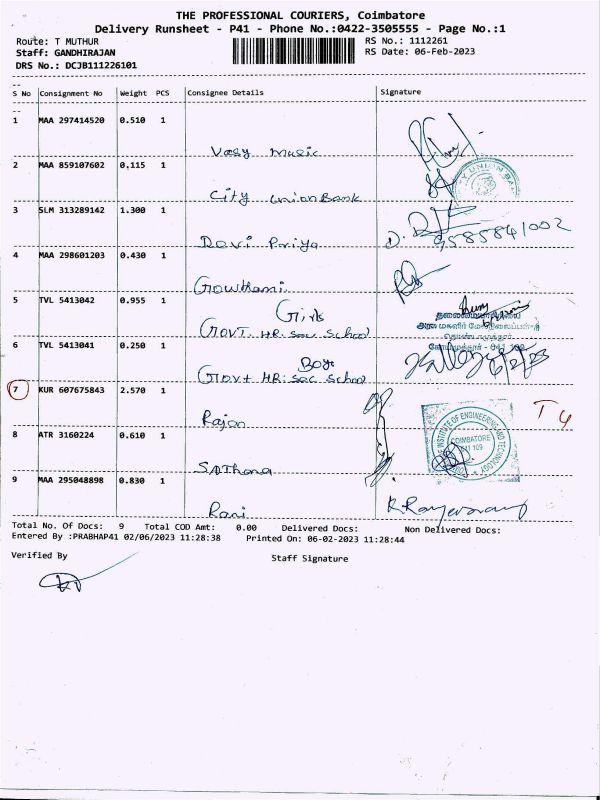 THE PROFESSIONAL COURIERS, Coimbatore
Delivery Runsheet - P41 - Phone No.:0422-3505555 - Page No.:1
Route: T MUTHUR
RS No.: 1112261
Staff: GANDHIRAJAN
RS Date: 06-Feb-2023
DRS No.: DCJB111226101
S No Consignment No Weight PCS Consignee Details Signature
1 MAA 297414520 0.510 1
Vasy music
2 MAA 859107602 0.115 1
City union Bank
3 SLM 313289142 1.300 1
Devi Priya D. 9585841002
4 MAA 298601203 0.430 1
Gowthami
5 TVL 5413042 0.955 1
Girls
Govt. HR. sec. School
6 TVL 5413041 0.250 1
Boys
Govt HR. Sec School 6/2/23
7 KUR 607675843 2.570 1
Rajan
T4
8 ATR 3160224 0.610 1
INSTITUTE OF ENGINEERING AND TECHNOLOGY
COIMBATORE
641 109
Sathana
9 MAA 295048898 0.830 1
Rani
Total No. Of Docs: 9 Total COD Amt: 0.00 Delivered Docs: Non Delivered Docs:
Entered By :PRABHAP41 02/06/2023 11:28:38 Printed On: 06-02-2023 11:28:44
Verified By Staff Signature